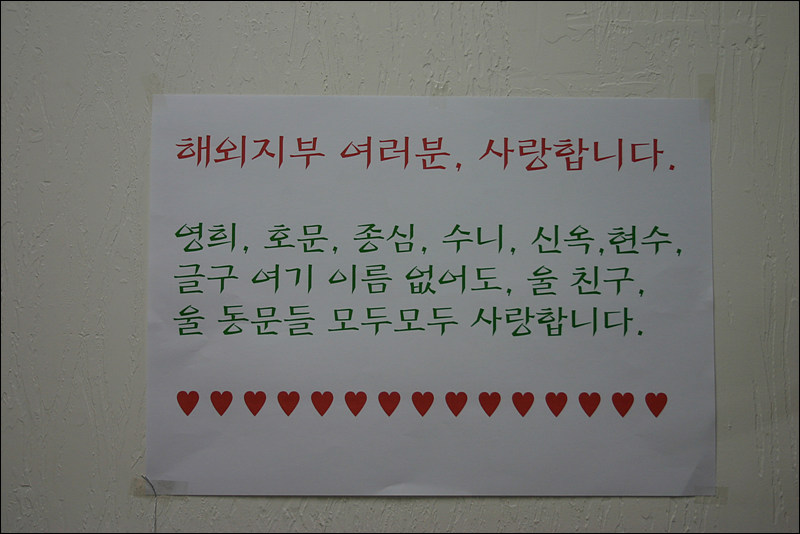 해외지부 여러분, 사랑합니다.
영희, 호문, 종심, 수니, 신옥,현수,
글구 여기 이름 없어도, 울 친구,
울 동문들 모두모두 사랑합니다.
♥♥♥♥♥♥♥♥♥♥♥♥♥♥♥